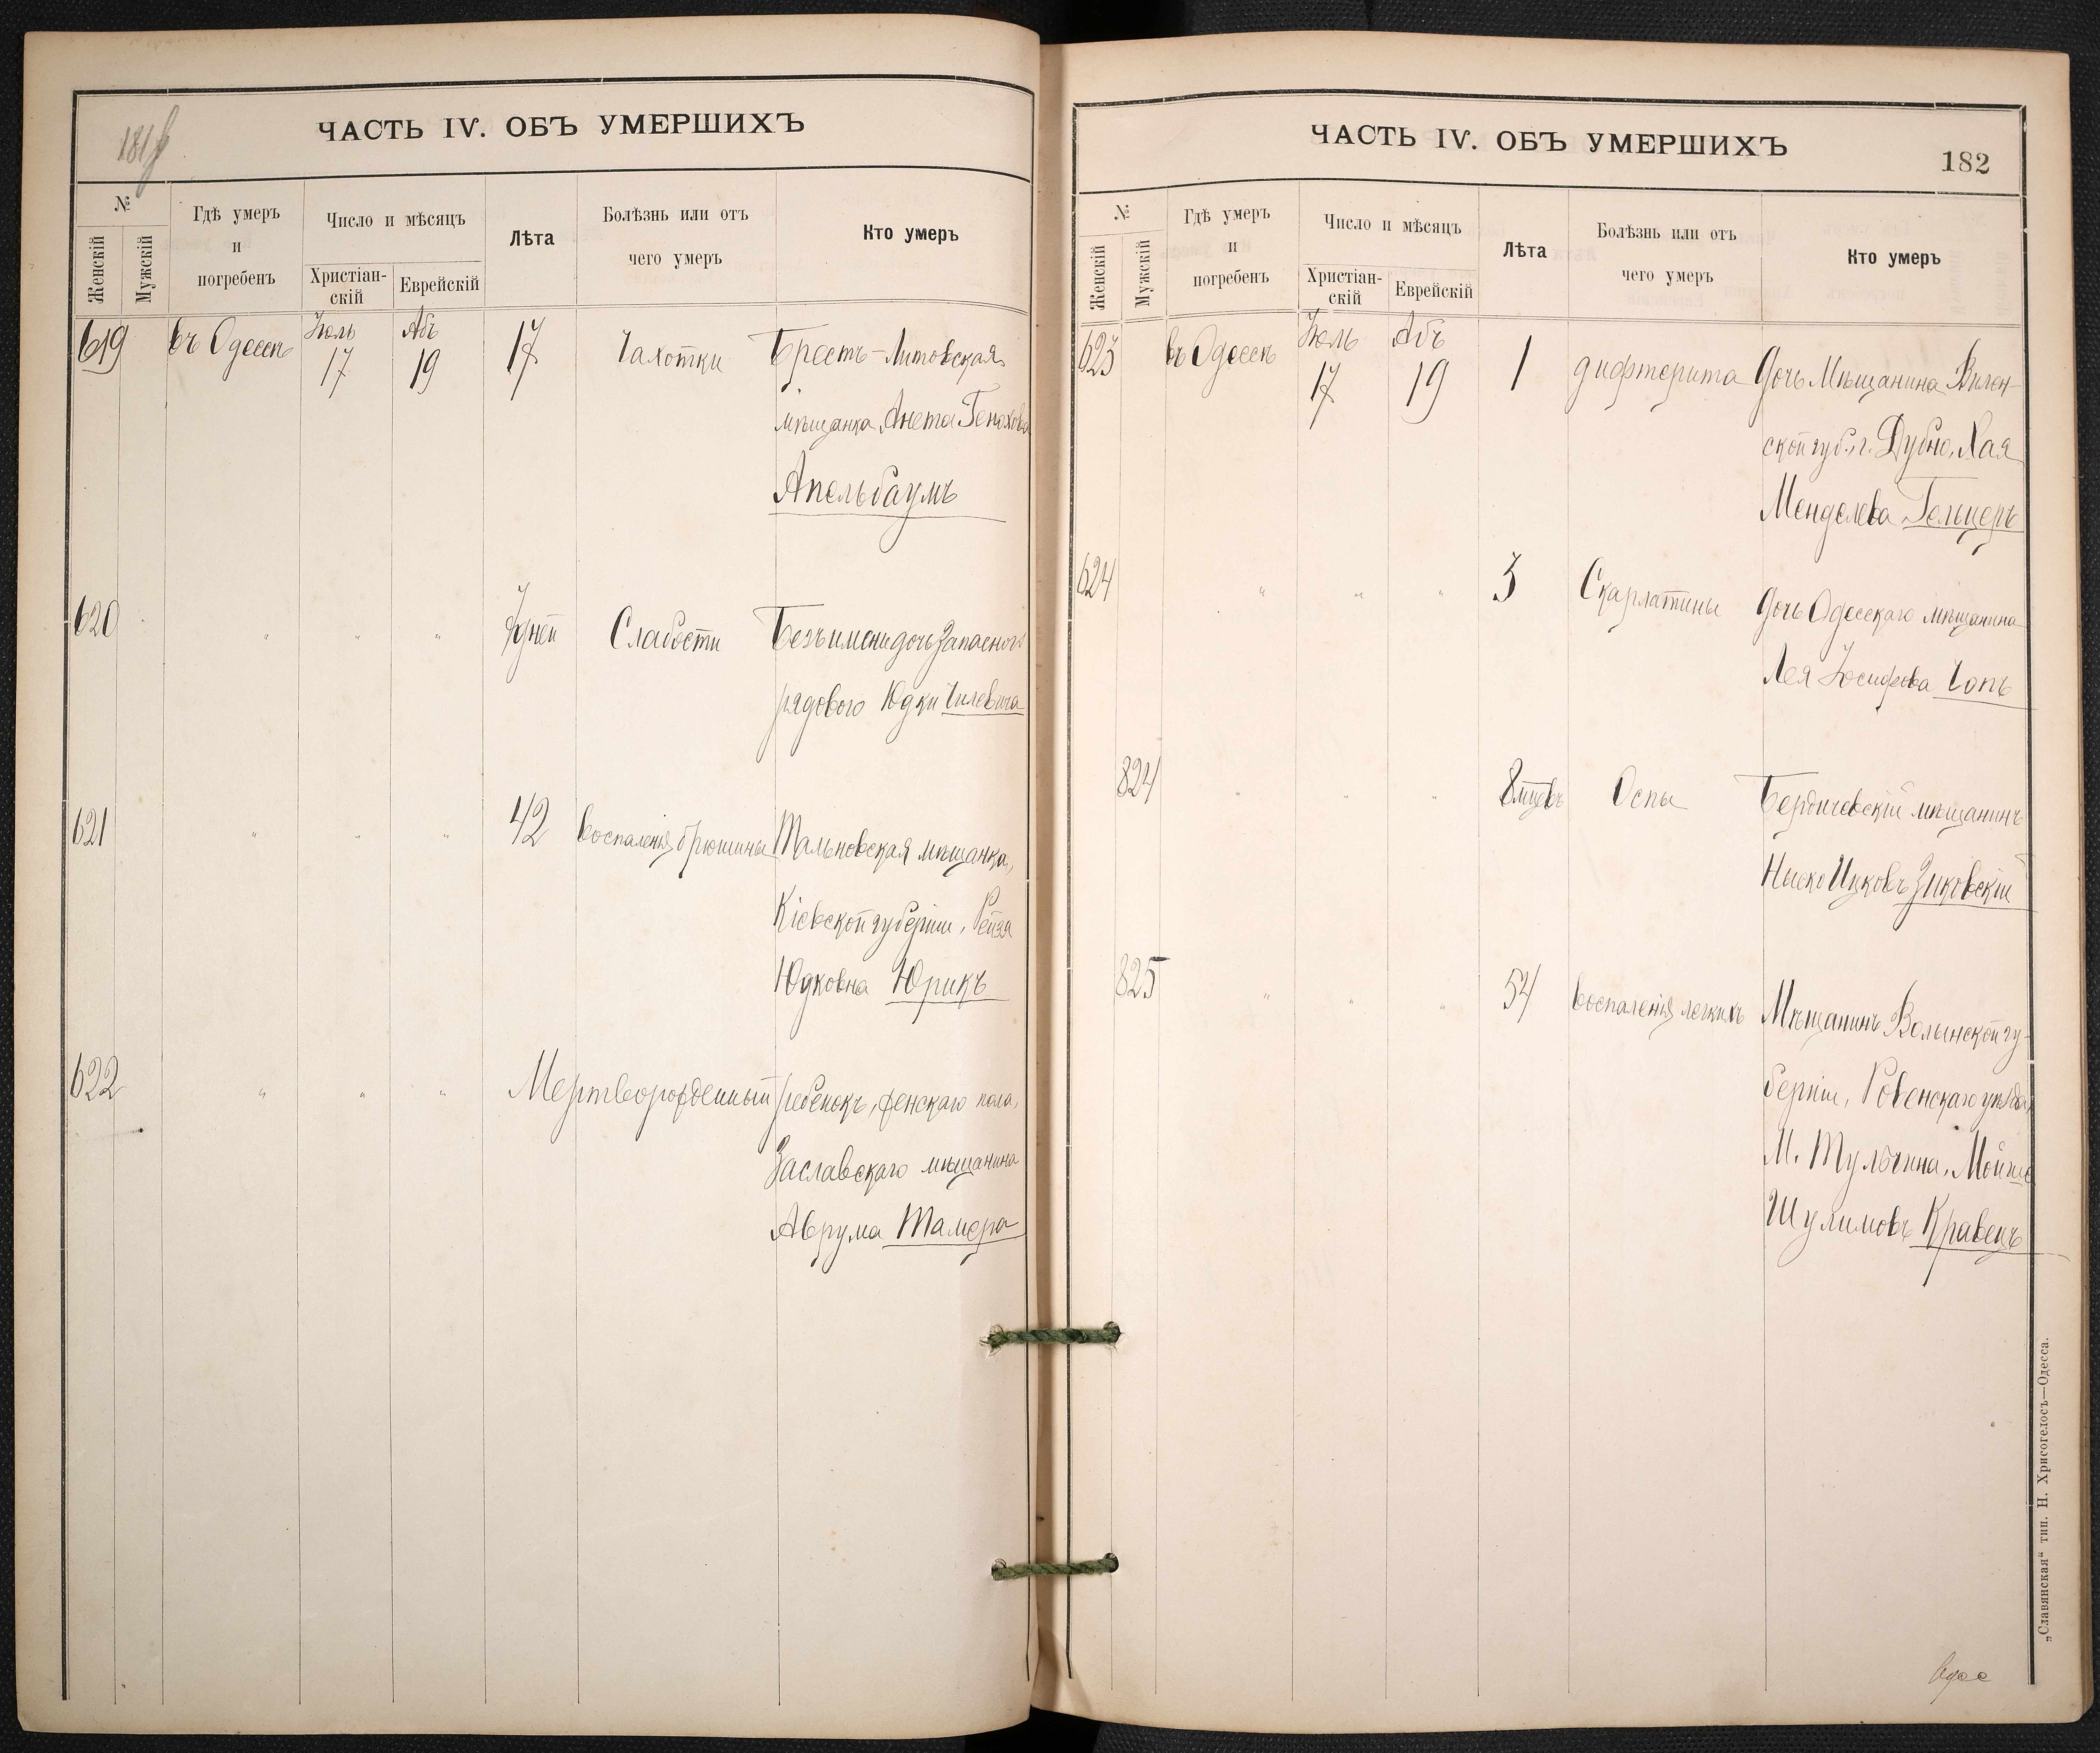 181
ЧАСТЬ IV. ОБЪ УМЕРШИХЪ
№
Женскій
Мужскій
Гдѣ умеръ
и
погребенъ
Число и мѣсяцъ
Христіан-
скій
Еврейскій
Лѣта
Болѣзнь или отъ
чего умеръ
Кто умеръ
619 въ Одессѣ Іюль 17 Абъ 19 17 Чахотки Брестъ-Литовская
мѣщанка Анета Генохова
Апельбаумъ
620 " " " 7 дней Слабости Безъ имени дочь запасного
рядового Юдки Чилевича
621 " " " 42 воспаленія брюшины Тальновская мѣщанка,
Кіевской губерніи, Рейзя
Юдковна Юрикъ
622 " " " Мертворожденный ребенокъ, женскаго пола,
Заславскаго мѣщанина
Аврума Тамера
ЧАСТЬ IV. ОБЪ УМЕРШИХЪ
182
№
Женскій
Мужскій
Гдѣ умеръ
и
погребенъ
Число и мѣсяцъ
Христіан-
скій
Еврейскій
Лѣта
Болѣзнь или отъ
чего умеръ
Кто умеръ
623 въ Одессѣ Іюль 17 Абъ 19 1 дифтерита Дочь Мѣщанина Вилен-
ской губ., г. Дубно, Хая
Менделева Гельцеръ
624 " " " 3 Скарлатины Дочь Одесскаго мѣщанина
Лея Іосифова Чопъ
824 " " " 8 мцевъ Оспы Бердичевскій мѣщанинъ
Ицковъ Зиковскій
825 " " " 54 воспаленія легкихъ Мѣщанинъ Волынской гу-
берніи, Ровенскаго уѣзда,
М. Тульчина, Мойше
Шулимовъ Кравецъ
„Славянская" тип. Н. Хрисогелосъ—Одесса.